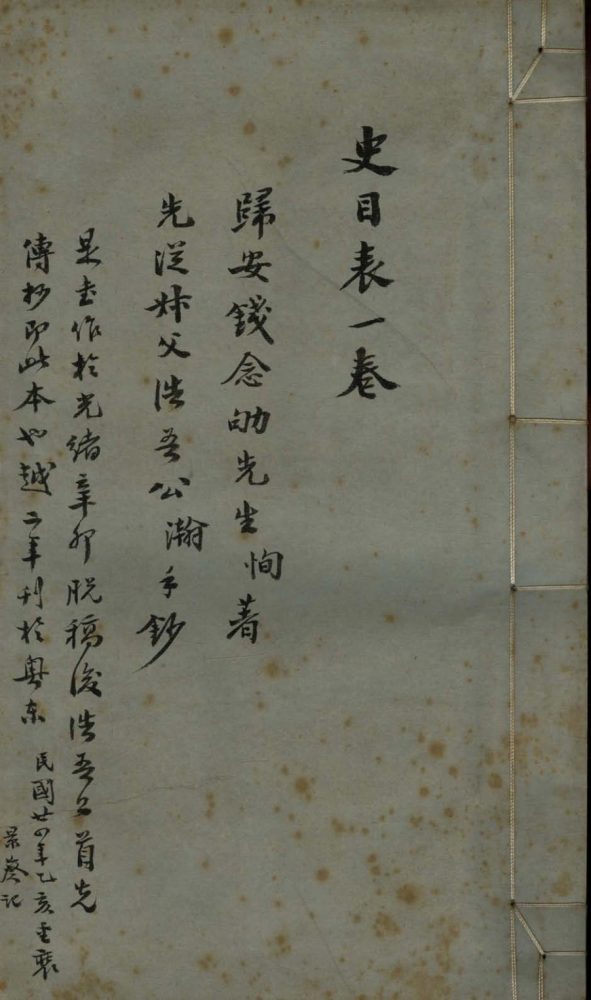 史目表一卷
歸安錢念劬先生恂著
先從姊父浩吾公瀚手鈔
是書作於光緒辛卯脫稿後浩吾公首先
傳抄即此本也越二年刊於粵東
民國廿四年乙亥重裝
景葵記